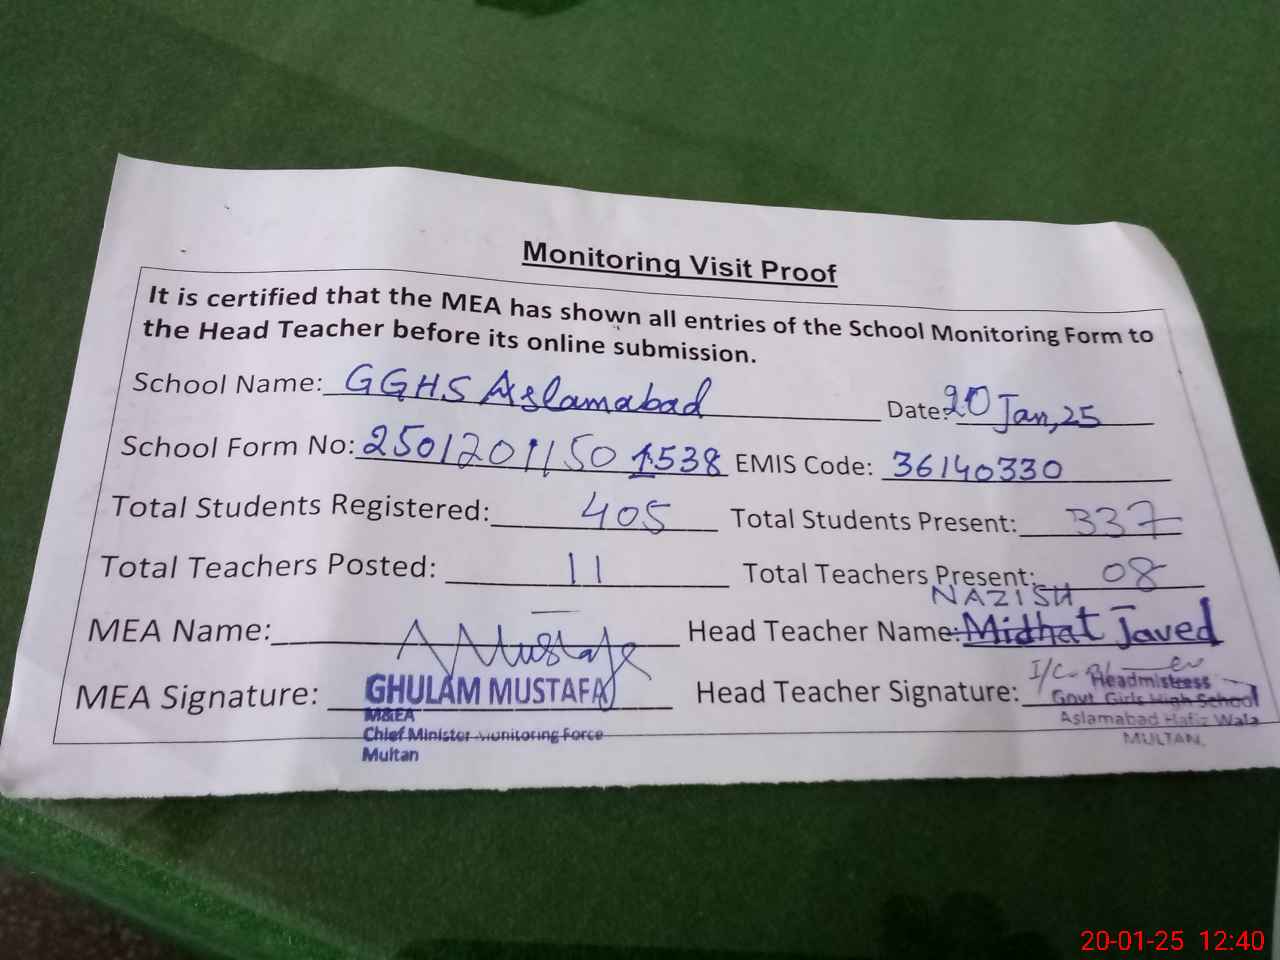 Monitoring Visit Proof
It is certified that the MEA has shown all entries of the School Monitoring Form to
the Head Teacher before its online submission.
School Name: GGHS Aslamabad Date: 20 Jan, 25
School Form No: 2501201150 1538 EMIS Code: 36140330
Total Students Registered: 405 Total Students Present: 337
Total Teachers Posted: 11 Total Teachers Present: 08
NAZISH
MEA Name: Head Teacher Name: Midhat Javed
MEA Signature: GHULAM MUSTAFA Head Teacher Signature: I/C Headmistress
M&EA Govt Girls High School
Chief Minister Monitoring Force Aslamabad Hafiz Wala
Multan MULTAN.
20-01-25 12:40